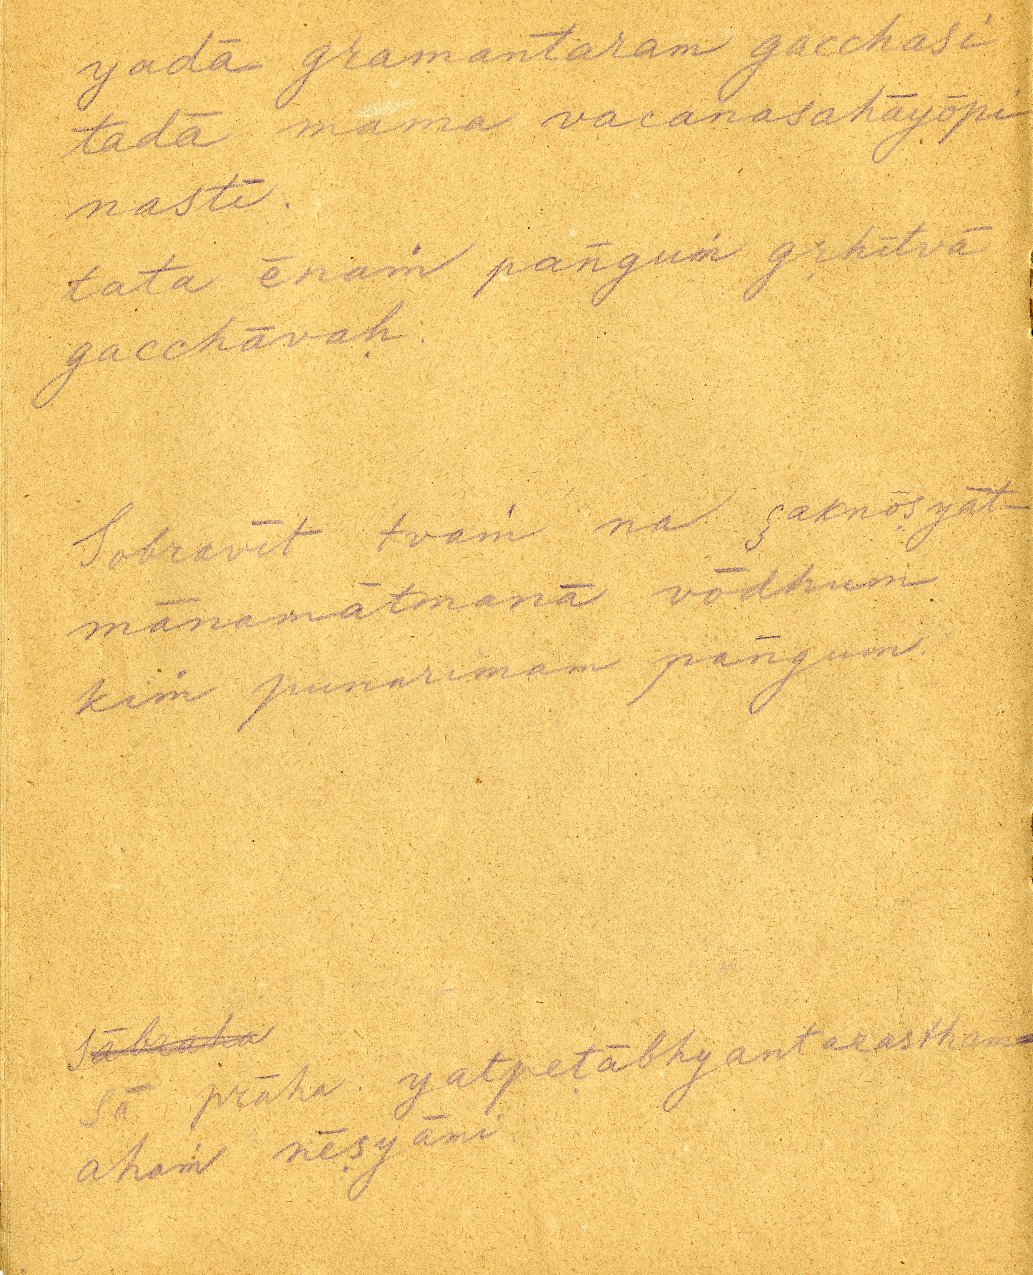 yadā gramantaram gacchasi
tadā mama vacanasahāyōpi
nasti.
tata ēnaṁ pañguṁ gṛhītvā
gacchāvaḥ.
Sobravīt tvaṁ na çaknōṣyāt-
mānamātmanā vōdhum
kiṁ punarimam pañgum.
Sābraha
Sā prāha. yatpeṭābhyantarastham-
ahaṁ nēṣyāmi